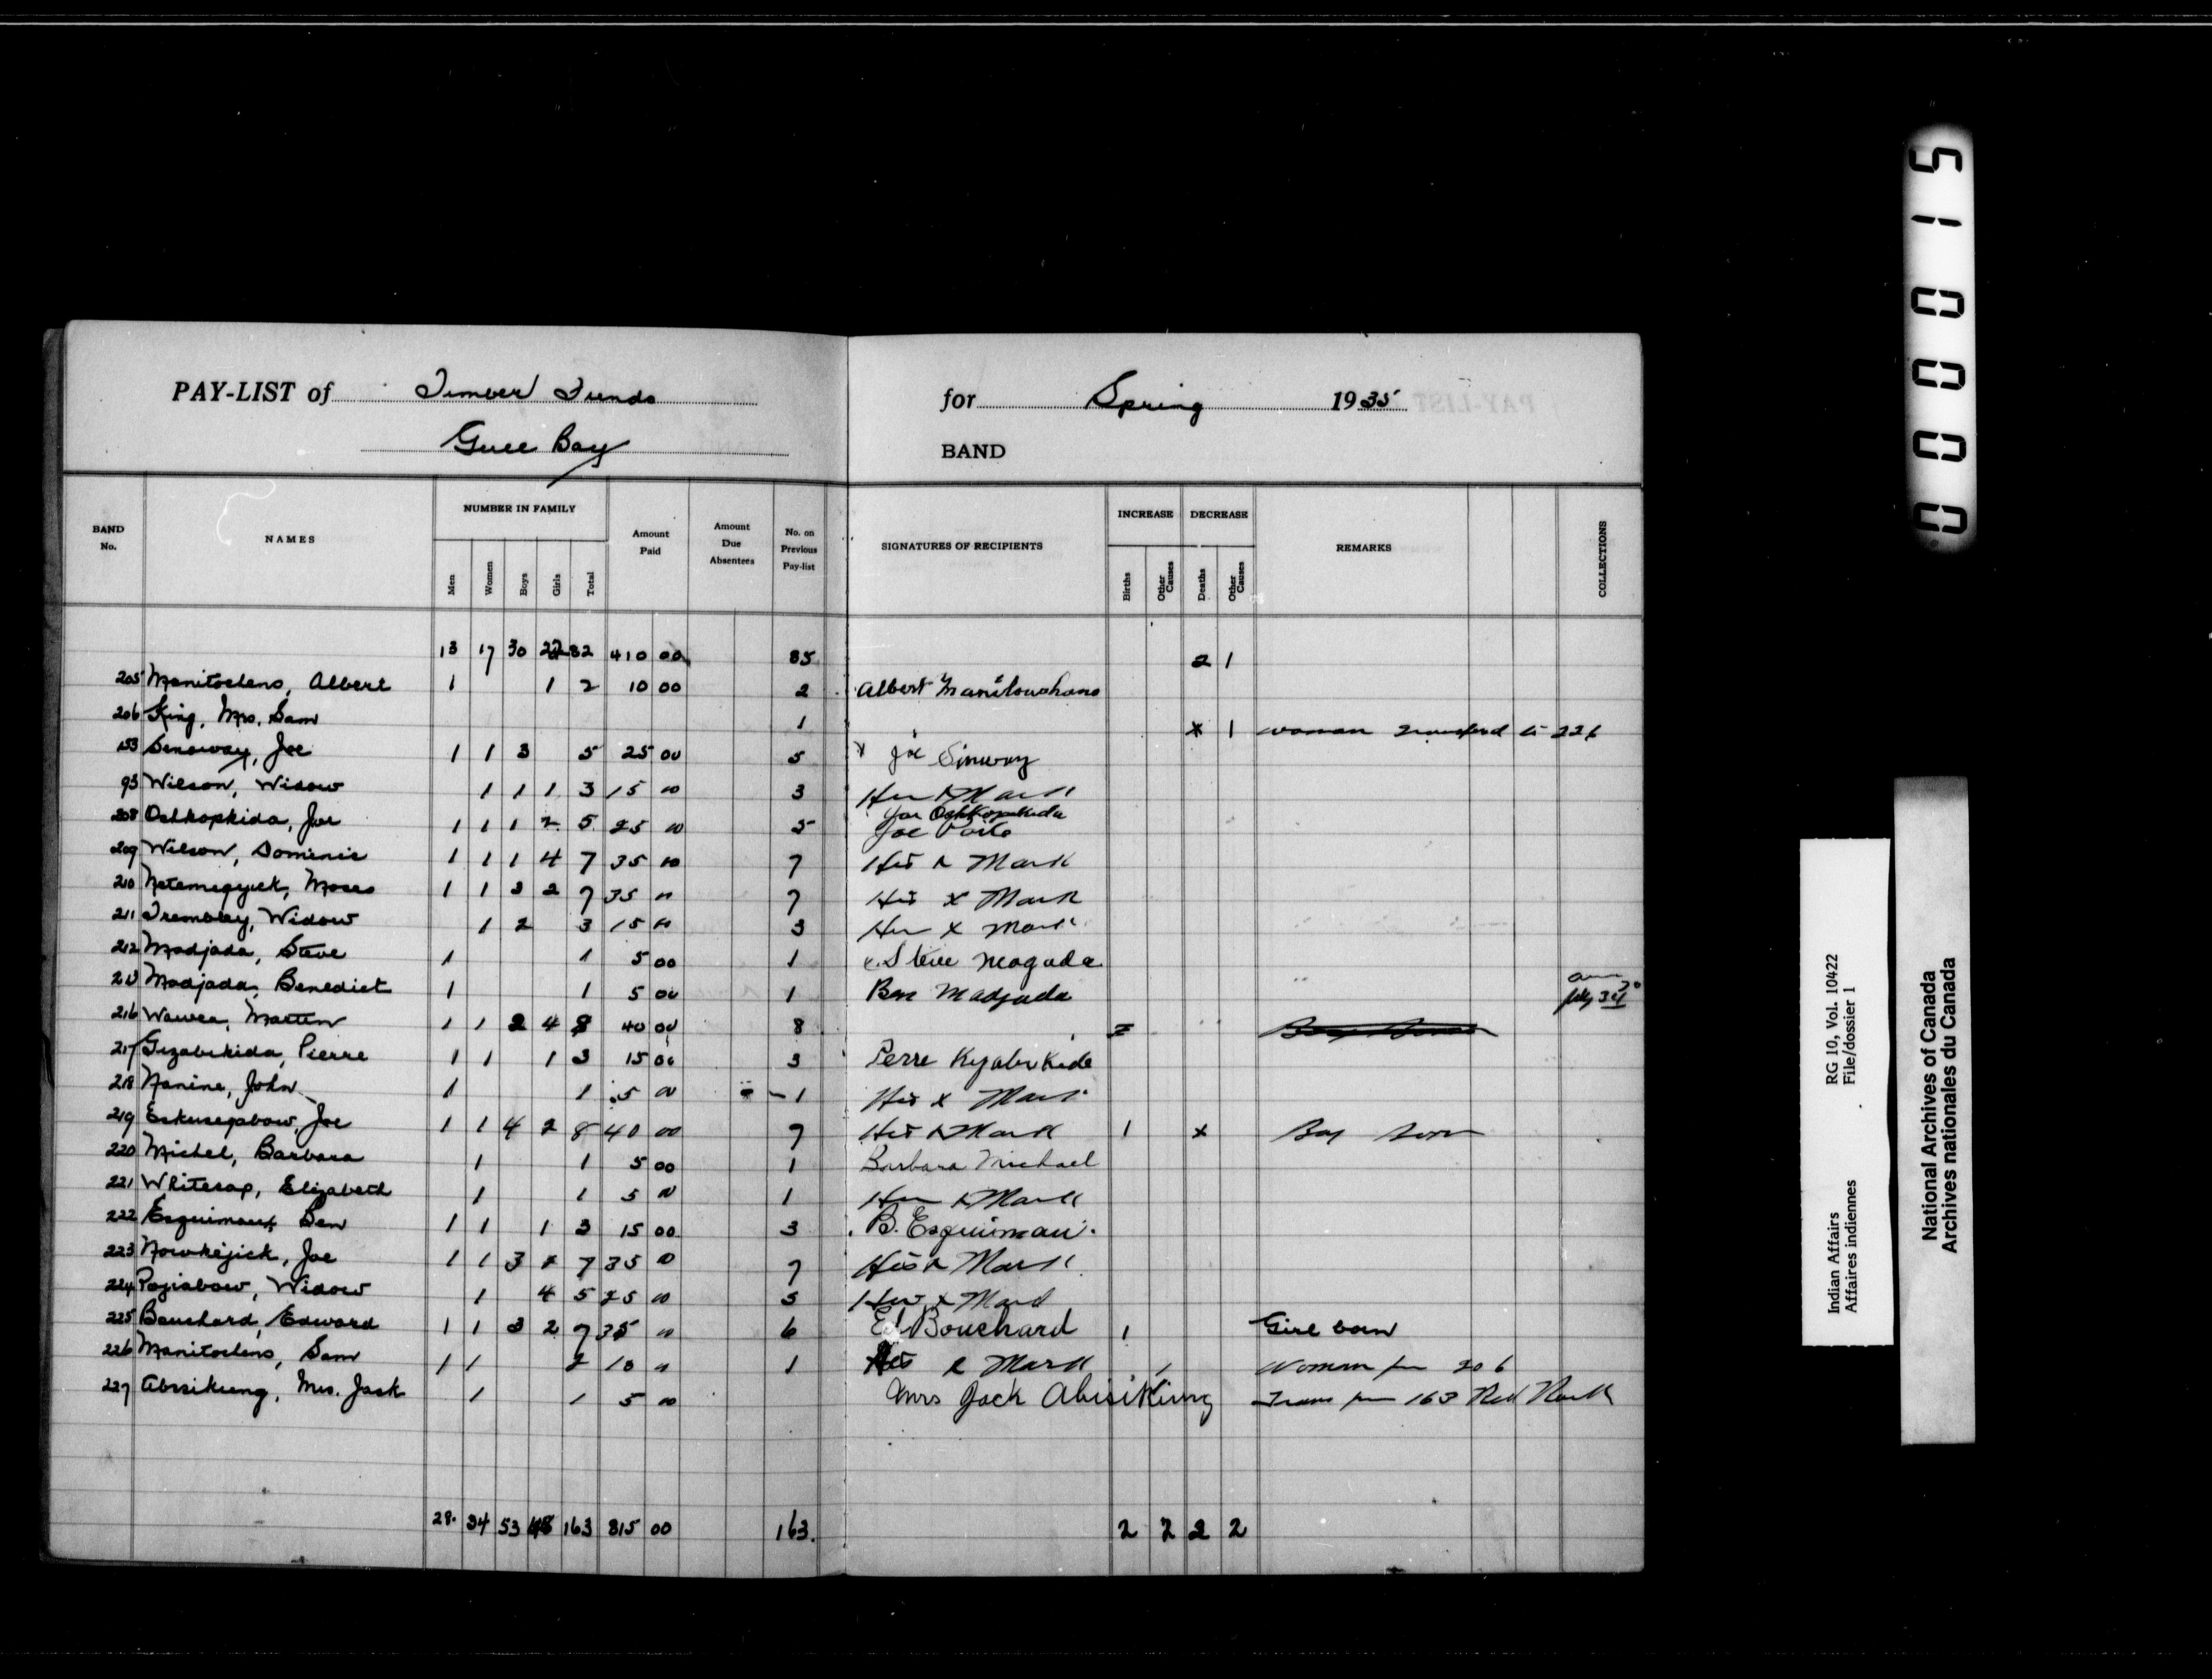 PAY-LIST of Timber Funds for Spring 1935
Gull Bay BAND
BAND No. NAMES NUMBER IN FAMILY Men Women Boys Girls Total Amount Paid Amount Due Absentees No. on Previous Pay-list SIGNATURES OF RECIPIENTS INCREASE Births Other Causes DECREASE Deaths Other Causes REMARKS COLLECTIONS
13 17 30 22 82 410 00 85 2 1
205 Manitoelens, Albert 1 1 2 10 00 2 Albert
206 King, Mrs. Sam 1 x 1 woman to 226
153 Senoway, Joe 1 1 3 5 25 00 5 x Joe Sinway
93 Wilson, Widow 1 1 1 3 15 00 3 Her x Mark
208 Oshkopkida, Joe 1 1 1 2 5 25 00 5 Joe Oshkopekida
Joe
209 Wilson, Dominic 1 1 1 4 7 35 00 7 His x Mark
210 Moses 1 1 3 2 7 35 00 7 His x Mark
211 Trembley, Widow 1 2 3 15 00 3 Her x Mark
212 Madjada, Steve 1 1 5 00 1 x Steve Magada
213 Madjada, Benedict 1 1 5 00 1 Ben Madjada
216 Wawea, Martin 1 1 2 4 8 40 00 8
217 Gizabekida, Pierre 1 1 1 3 15 00 3 Perre
218 Nanine, John 1 1 5 00 1 His x Mark
219 Eskusegabow, Joe 1 1 4 2 8 40 00 7 His x Mark 1 x Boy Born
220 Michel, Barbara 1 1 5 00 1 Barbara Michael
221 Whitesap, Elizabeth 1 1 5 00 1 Her x Mark
222 Esquimaux, Ben 1 1 1 3 15 00 3 B. Esquimau
223 Nowkejick, Joe 1 1 3 2 7 35 00 7 His x Mark
224 Pogiabow, Widow 1 4 5 25 00 5 Her x Mark
225 Bouchard, Edward 1 1 3 2 7 35 00 6 Ed Bouchard 1 Girl born
226 Manitoelens, Sam 1 1 2 10 00 1 His x Mark 1 Woman from 206
227 Abisikung, Mrs. Jack 1 1 5 00 Mrs Jack Abisikung 1 Trans from 163 Red Rock
28 34 53 48 163 815 00 163 2 2 2 2
000015
Indian Affairs RG 10, Vol. 10422
Affaires indiennes File/dossier 1
National Archives of Canada
Archives nationales du Canada